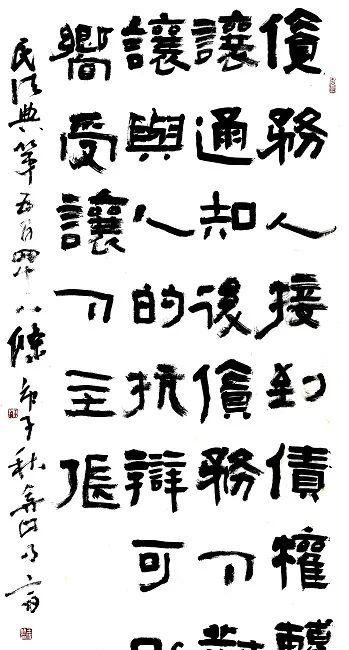 債務人接到債權轉
讓通知後債務人對
讓與人的抗辯可以
嚮受讓人主張
民法典第五百四十八條 子秋